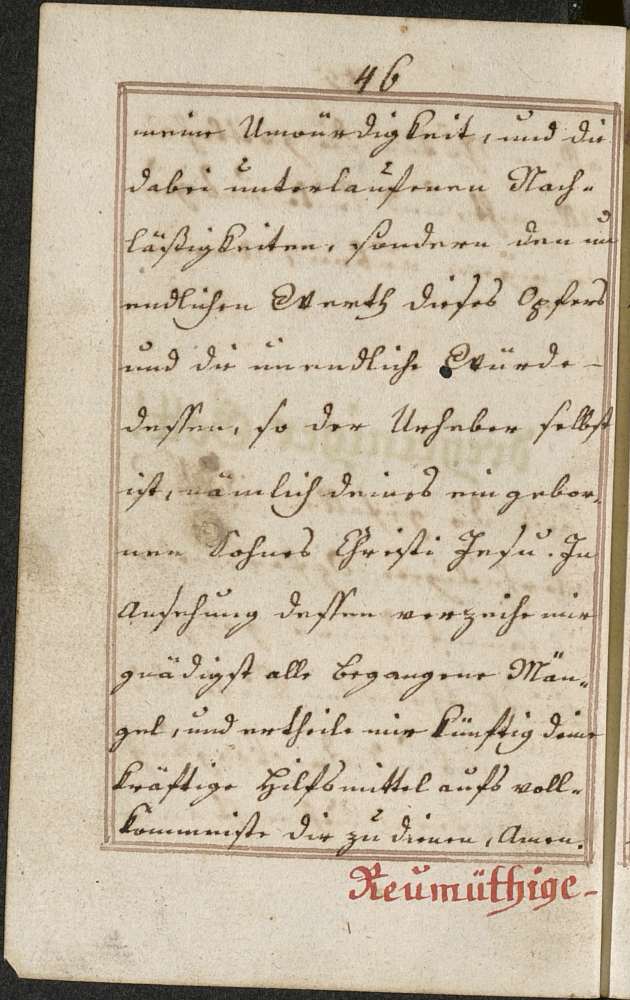 46
meine Unwürdigkeit, und die
dabei unterlaufenen Nach-
läßigkeiten, sondern den un
endlichen Werth dieses Opfers
und die unendliche Würde-
dessen, so der Urheber selbst
ist, nämlich deines eingebor-
nen Sohnes Christi Jesu. In
Ansehung dessen verzeihe mir
gnädigst alle begangene Män-
gel, und ertheile mir künftig deine
kräftige Hilfsmittel aufs voll-
kommniste dir zu dienen, Amen.
Reumüthige-